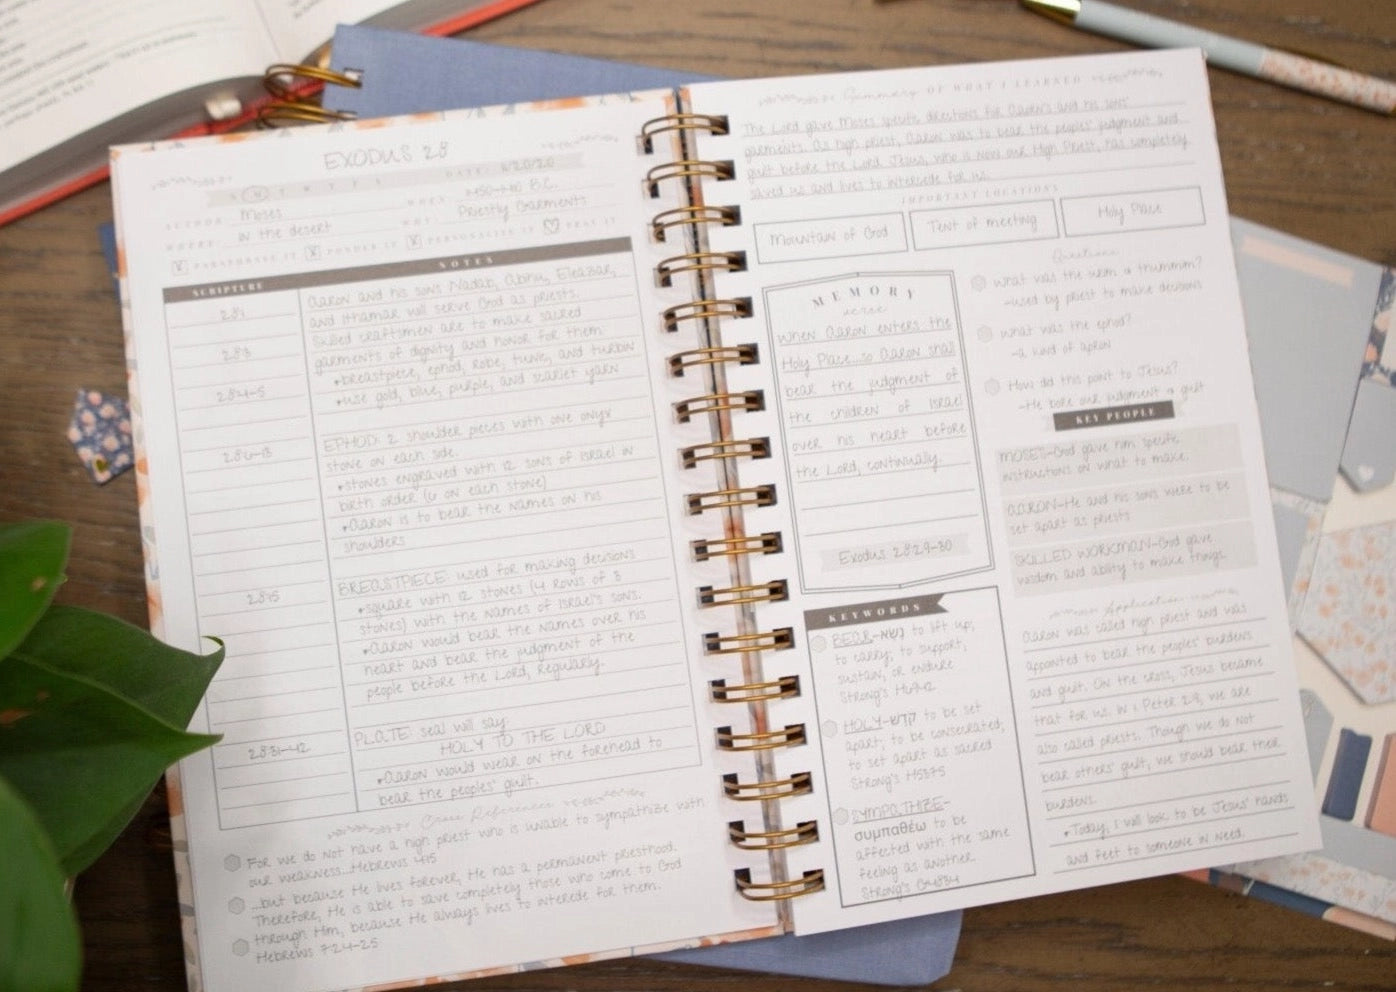 EXODUS 28
S M T W T F S
DATE: 6/20/20
AUTHOR: Moses
WHEN: 1450-1410 B.C.
WHERE: in the desert
WHY: Priestly Garments
PARAPHRASE IT X PONDER IT X PERSONALIZE IT PRAY IT
SCRIPTURE NOTES
28:1 Aaron and his sons Nadab, Abihu, Eleazar,
and Ithamar will serve God as priests.
28:3 Skilled craftsmen are to make sacred
garments of dignity and honor for them:
28:4-5 •breastpiece, ephod, robe, tunic, and turbin
•use gold, blue, purple, and scarlet yarn
28:6-13 EPHOD: 2 shoulder pieces with one onyx
stone on each side.
•stones engraved with 12 sons of Israel in
birth order (6 on each stone)
•Aaron is to bear the names on his
shoulders
28:15 BREASTPIECE: used for making decisions
•square with 12 stones (4 rows of 3
stones) with the names of Israel's sons.
•Aaron would bear the names over his
heart and bear the judgment of the
people before the Lord, regularly.
28:31-42 PLATE: seal will say
HOLY TO THE LORD
•Aaron would wear on the forehead to
bear the peoples' guilt.
Cross References
For we do not have a high priest who is unable to sympathize with
our weakness...Hebrews 4:15
...but because He lives forever, He has a permanent priesthood.
Therefore, He is able to save completely those who come to God
through Him, because He always lives to intercede for them.
Hebrews 7:24-25
Summary OF WHAT I LEARNED
The Lord gave Moses specific directions for Aaron's and his sons'
garments. As high priest, Aaron was to bear the peoples' judgment and
guilt before the Lord. Jesus, who is now our High Priest, has completely
saved us and lives to intercede for us.
IMPORTANT LOCATIONS
Mountain of God
Tent of meeting
Holy Place
MEMORY
verse
When Aaron enters the
Holy Place...so Aaron shall
bear the judgment of
the children of Israel
over his heart before
the Lord, continually.
Exodus 28:29-30
Questions
What was the urim & thummim?
-used by priest to make decisions
What was the ephod?
-a kind of apron
How did this point to Jesus?
-He bore our judgment & guilt
KEY PEOPLE
MOSES-God gave him specific
instructions on what to make.
AARON-He and his sons were to be
set apart as priests
SKILLED WORKMAN-God gave
wisdom and ability to make things.
KEYWORDS
BEAR-נשא to lift up,
to carry, to support,
sustain, or endure
Strong's
HOLY-קדש to be set
apart, to be consecrated,
to set apart as sacred
Strong's
SYMPATHIZE-
συμπαθέω to be
affected with the same
feeling as another.
Strong's G4834
Application
Aaron was called high priest and was
appointed to bear the peoples' burdens
and guilt. On the cross, Jesus became
that for us. In 1 Peter 2:9, we are
also called priests. Though we do not
bear others' guilt, we should bear their
burdens.
•Today, I will look to be Jesus' hands
and feet to someone in need.